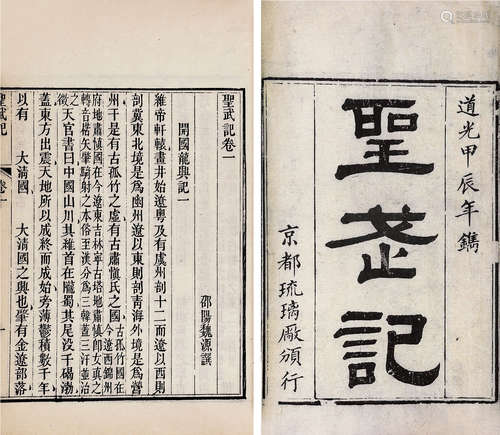 道光甲辰年鐫
聖武記
京都琉璃厰頒行
聖武記卷一
邵陽魏源譔
開國龍興記一
維帝軒轅畫井始遼粤及有虞州剖十二而遼以西則
剖冀東北境是爲幽州遼以東則剖青海外境是爲營
州于是有古孤竹之虛有古肅愼氏之國古孤竹國在今遼西錦州
府地肅愼國在今遼東吉林寧古塔地肅愼卽女真之
轉音楛矢肇騎射之本俗至漢分爲三韓蓋三汗並治
之徵天官書曰中國山川其維首在隴蜀其尾没于碣渤
蓋東方出震天地所以成終而成始旁薄鬱積數千年
以有 大清國 大清國之興也肇有金遼部落
聖武記 卷一